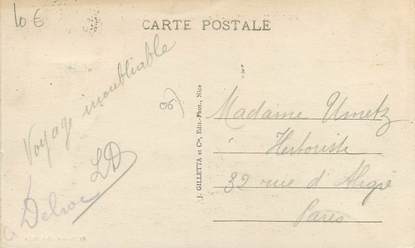 10 €
CARTE POSTALE
Voyage inoubliable
LD
J. GILLETTA et Cie, Edit.-Phot., Nice
Madame
Herboriste
32 rue d'Aligre
Paris